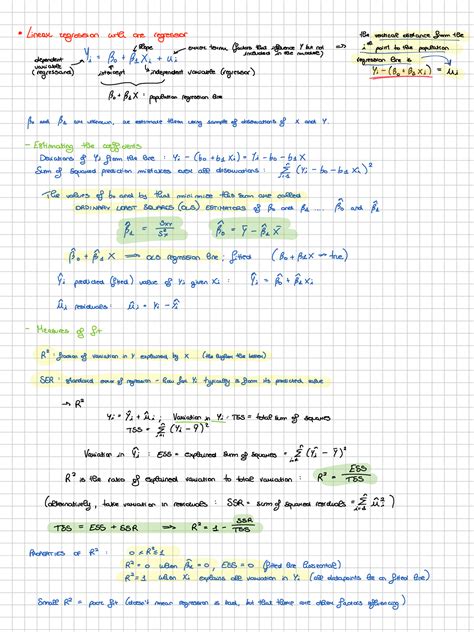 • Linear regression with one regressor
slope
error term (factors that influence Y but not included in the model)
⇒ the vertical distance from the iᵗʰ point to the population regression line is
dependent variable (regressand)
Yi = β₀ + β₁ Xi + ui
Yi - (β₀ + β₁ Xi) = ui
intercept
independent variable (regressor)
β₀ + β₁ X : population regression line
β₀ and β₁ are unknown, we estimate them using sample of observations of X and Y.
- Estimating the coefficients
Deviations of Yi from the line : Yi - (b₀ + b₁ Xi) = Yi - b₀ - b₁ X
Sum of squared prediction mistakes over all observations : Σ (Yi - b₀ - b₁ X)²
The values of b₀ and b₁ that minimize this sum are called
ORDINARY LEAST SQUARES (OLS) ESTIMATORS of β₀ and β₁ .... β̂₀ and β̂₁
β̂₁ = Sxy / S²x
β̂₀ = Ȳ - β̂₁ X̄
β̂₀ + β̂₁ X ⇒ OLS regression line ; fitted (β₀ + β₁ X ⇒ true)
Ŷi predicted (fitted) value of Yi given Xi : Ŷi = β̂₀ + β̂₁ Xi
ûi residuals : ûi = Yi - Ŷi
- Measures of fit
R² : fraction of variation in Y explained by X (the higher the better)
SER : standard error of regression - how far Yi typically is from its predicted value
→ R²
Yi = Ŷi + ûi ; Variation in Yi : TSS = total sum of squares
TSS = Σ (Yi - Ȳ)²
Variation in Ŷi : ESS = explained sum of squares = Σ (Ŷi - Ȳ)²
R² is the ratio of explained variation to total variation : R² = ESS / TSS
(alternatively, take variation in residuals : SSR = sum of squared residuals = Σ ûi²)
TSS = ESS + SSR ⇒ R² = 1 - SSR / TSS
PROPERTIES OF R² : 0 ≤ R² ≤ 1
R² = 0 when β̂₁ = 0, ESS = 0 (fitted line horizontal)
R² = 1 when Xi explains all variation in Yi (all datapoints lie on fitted line)
Small R² = poor fit (doesn't mean regression is bad, but that there are other factors influencing)